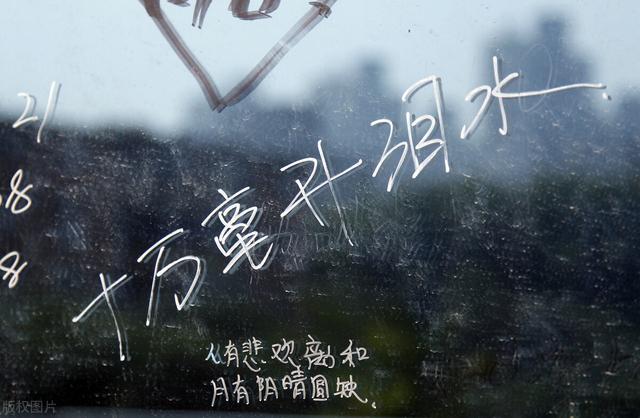 21
8
8
十万毫升泪水.
人有悲欢离和
月有阴晴圆缺.
版权图片